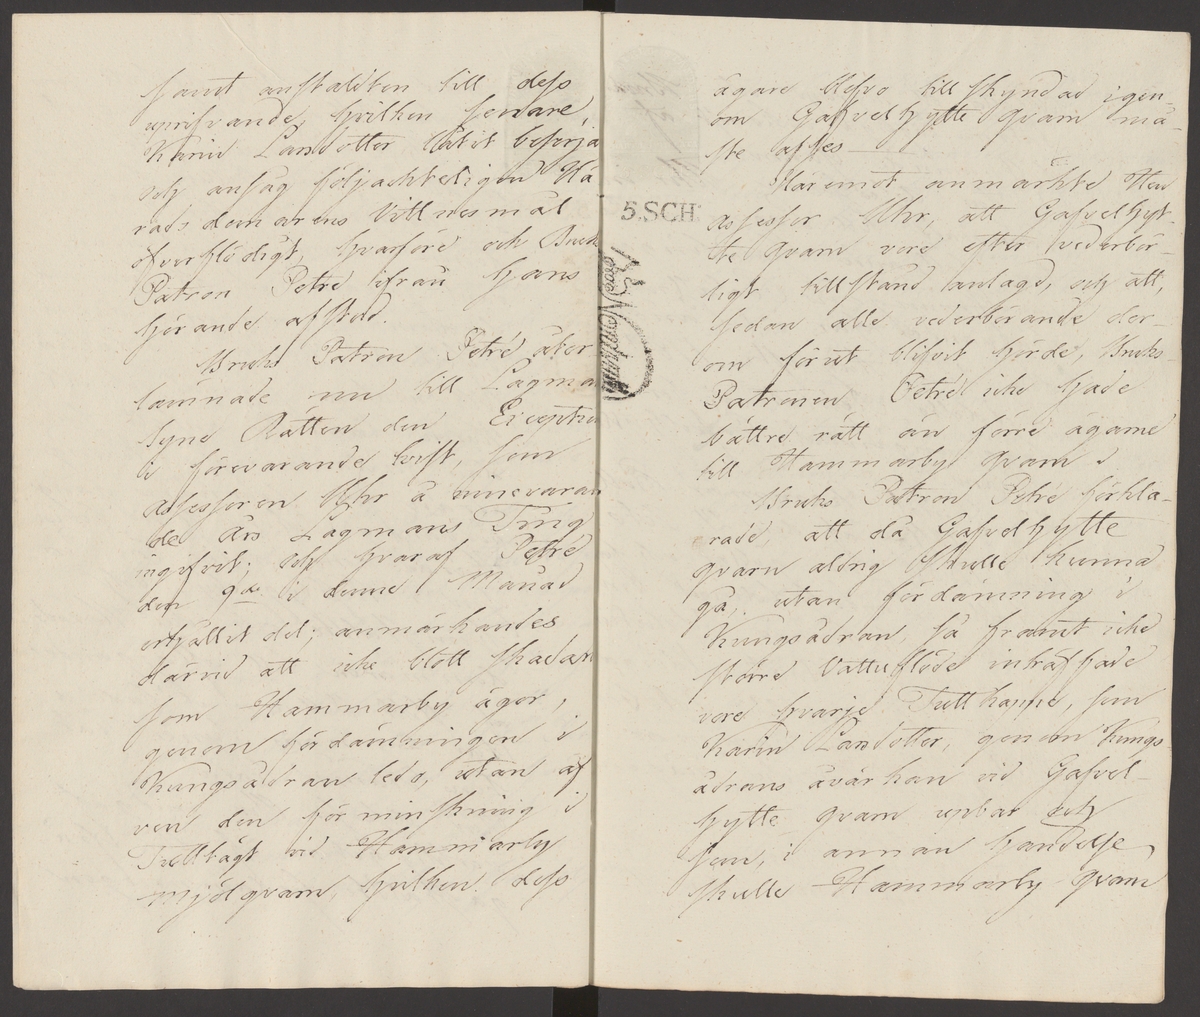 samt anstalten till dess
uprifvande, hvilken senare,
Karin Larsdotter låtit besörja
och ansåg följackteligen Hä
radsdomarens Vittnesmål
öfverflödigt, hvarföre och Bruks
Patron Petré ifrån hans
hörande afstod.
Bruks Patron Petré åter
lämnade nu till Lagmans
Syne Rätten den Exception
i förevarande tvist, som
Assessoren Uhr å innevaran
de års Lagmans Ting
ingifvit; och hvaraf Petré
den 9de i denne Månad
erhållit del; anmärkandes
därvid att icke blott skadan
som Hammarby ägor,
genom fördämningen i
Kungsådran ledo, utan äf
ven den förminskning i
Tulltägt vid Hammarby
Mjölqvarn, hvilken dess
5.SCH
ägare blefvo tillskyndad igen-
om Gafvelhytte qvarn må-
ste afses
Häremot anmärkte Herr
Assessor Uhr, att Gafvelhyt-
te qvarn vore efter vederbör-
ligt tillstånd anlagd, och att,
sedan alle vederbörande der-
om förut blifvit hörde, Bruks-
Patronen Petré icke hade
bättre rätt än förre ägarne
till Hammarby qvarn.
Bruks Patron Petré förkla-
rade, att då Gafvelhytte
qvarn aldrig skulle kunna
gå, utan fördämning i
Kungsådran, så framt icke
större Vattuflöde inträffade
vore hvarje Tullkappe, som
Karin Larsdotter, genom Kungs-
ådrans åvärkan vid Gafvel-
hytte qvarn upbar och
som, i annan händelse,
skulle Hammarby qvarn